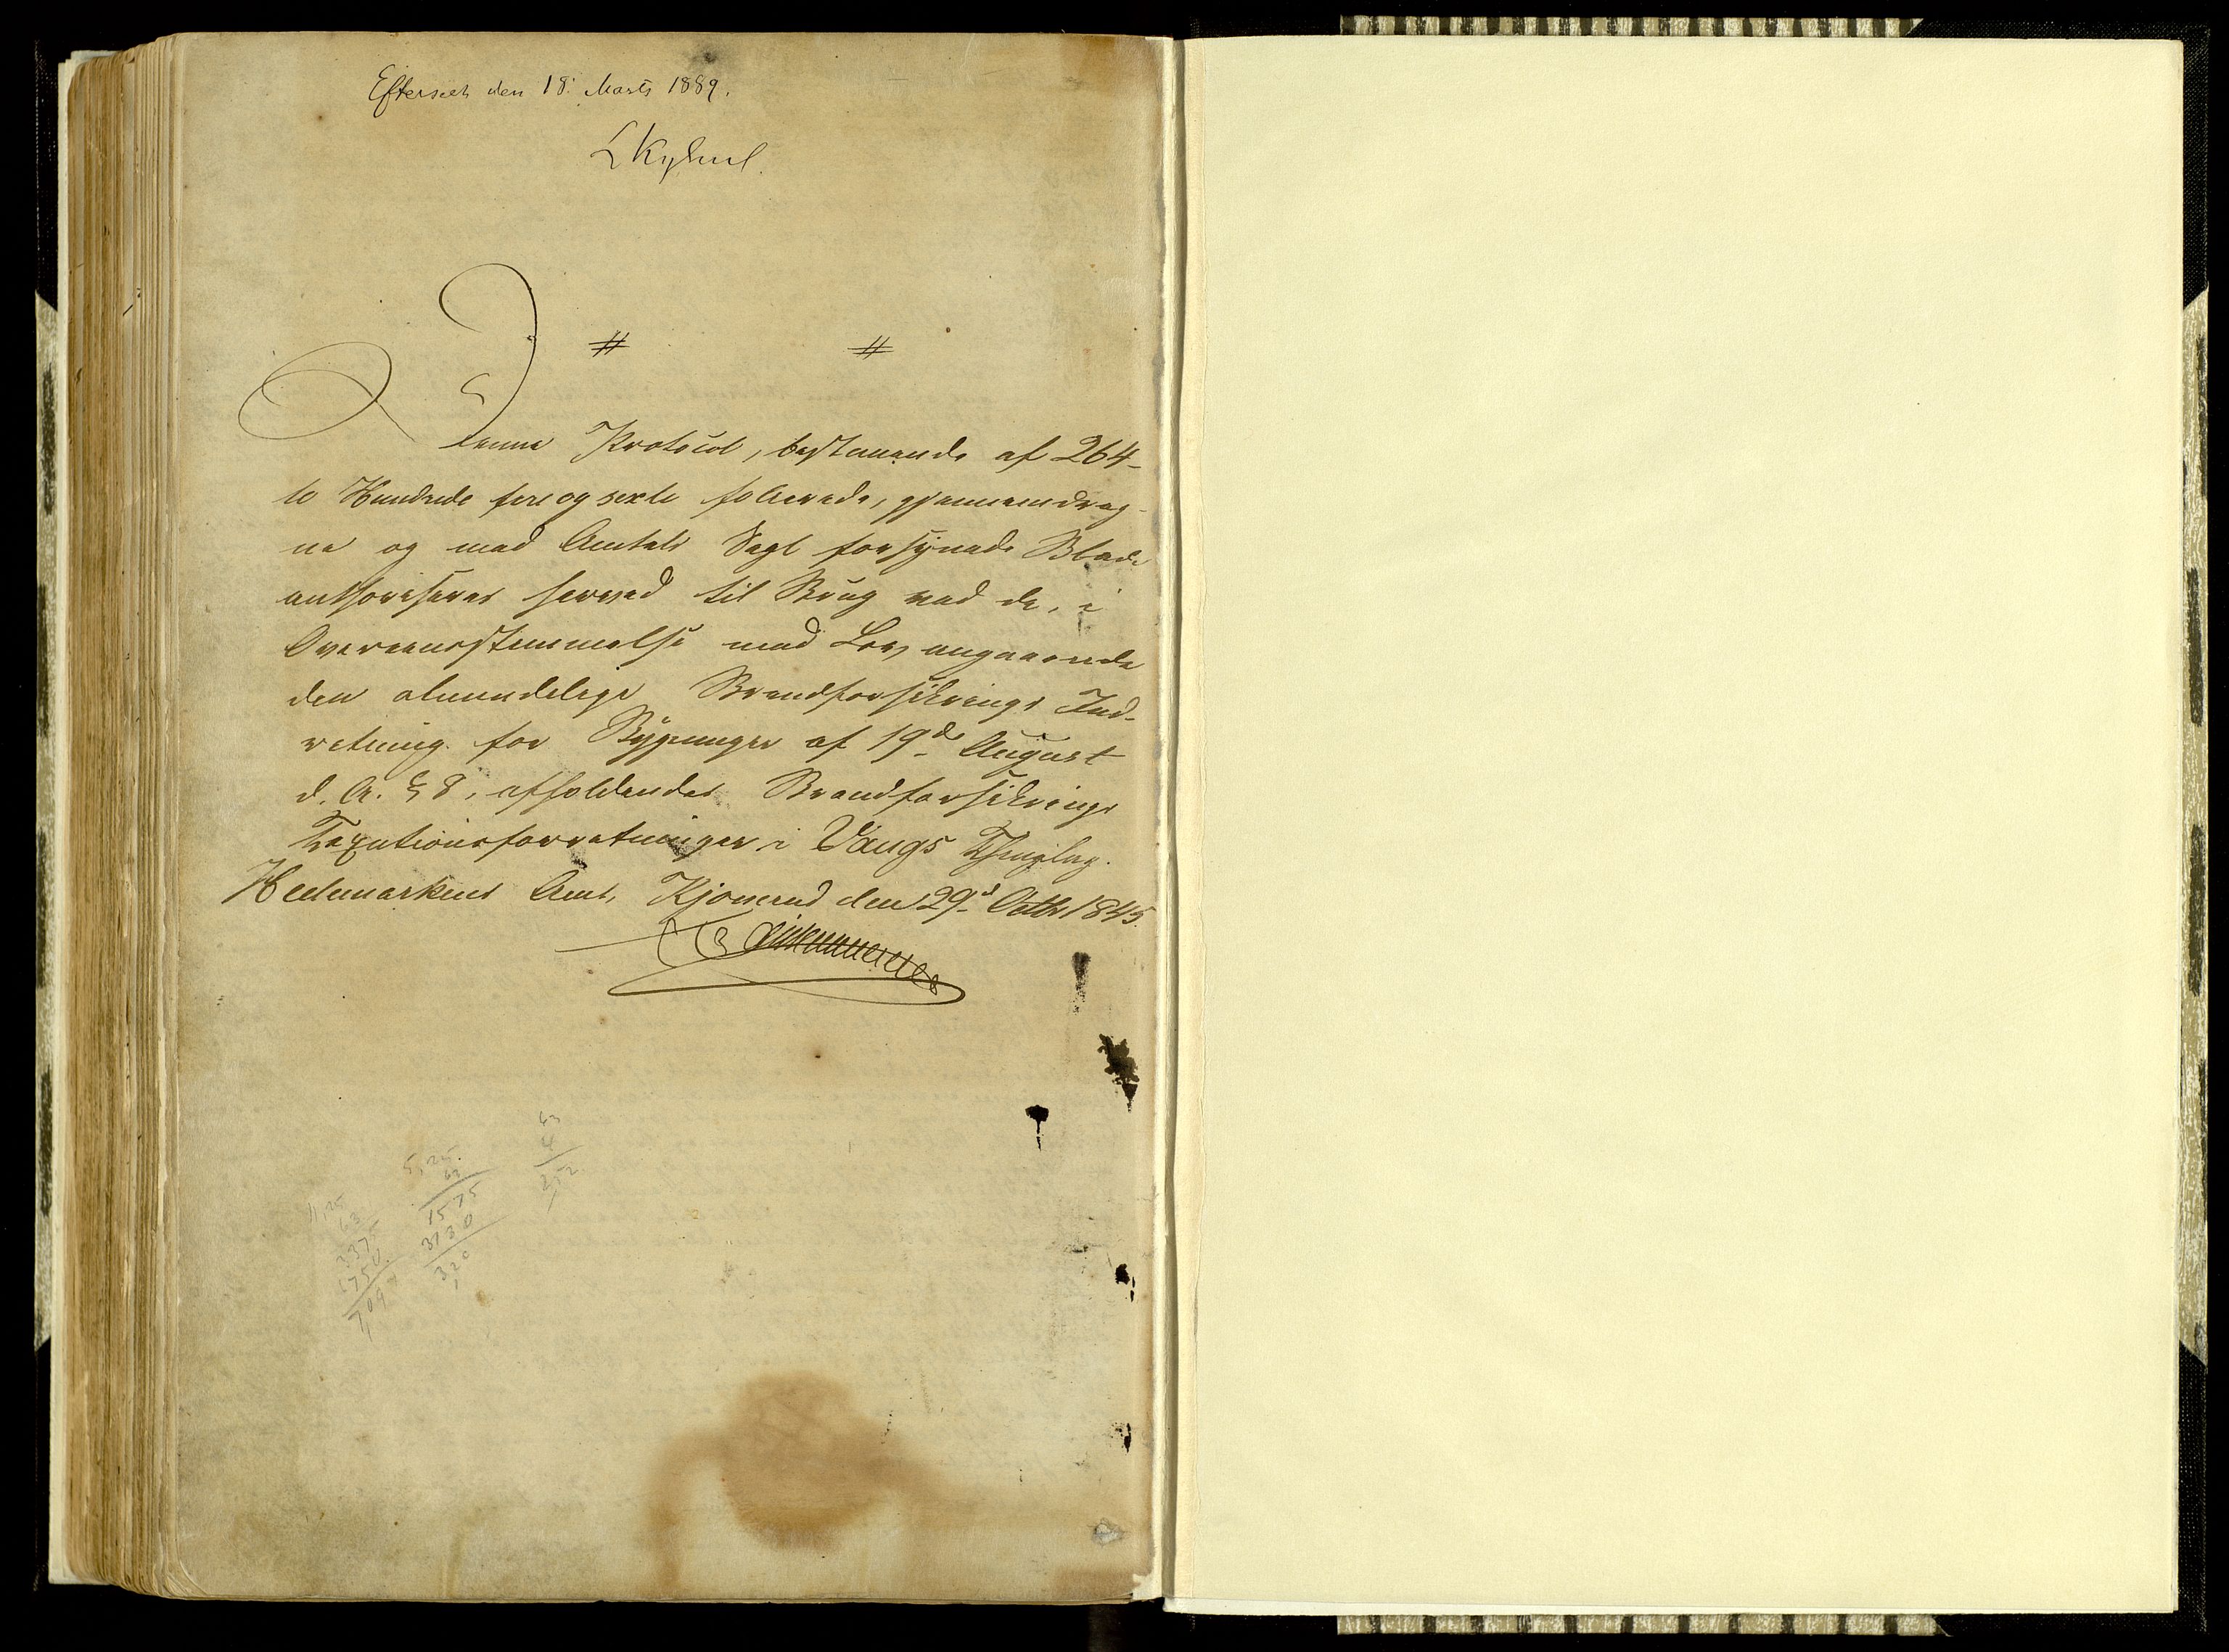 Efterseet den 18. Marts 1889.
L Kyhul.
# #
Denne Protocol, bestaaende af 264-
to Hundrede fire og sexti folierede, gjennemdrag-
ne og med Amtets Segl forsynede Blade
authoriseres herved til Brug ved de, i
Overeensstemmelse med Lov angaaende
den almindelige Brandforsikrings Ind-
retning for Bygninger af 19de August
d. A. § 8, afholdendes Brandforsikrings
Taxationsforretninger i Vangs Thinglag.
Hedemarkens Amt, Kjonerud den 29d Octbr 1845.
5,25.
63
1575
3130
320
63
4
252
11,25
63
3375
6750
709